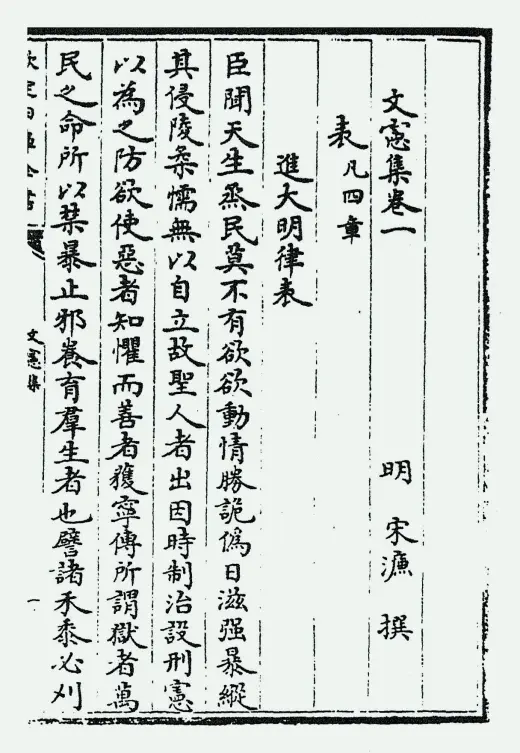 文憲集卷一
明 宋濂 撰
表 凡四章
進大明律表
臣聞天生烝民莫不有欲欲動情勝詭偽日滋强暴縱
其侵陵柔懦無以自立故聖人者出因時制治設刑憲
以為之防欲使惡者知懼而善者獲寧傳所謂獄者萬
民之命所以禁暴止邪養育羣生者也譬諸禾黍必刈
欽定四庫全書
文憲集
一